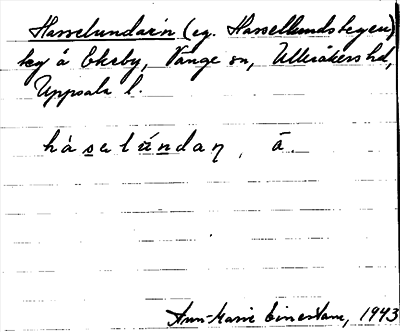 Hasselundar'n (eg. Hassellundshagen)
hg å Ekeby, Vänge sn, Ulleråkers hd,
Uppsala l.
hàselúndaɳ, ā.
Ann-Marie Einerstam, 1943